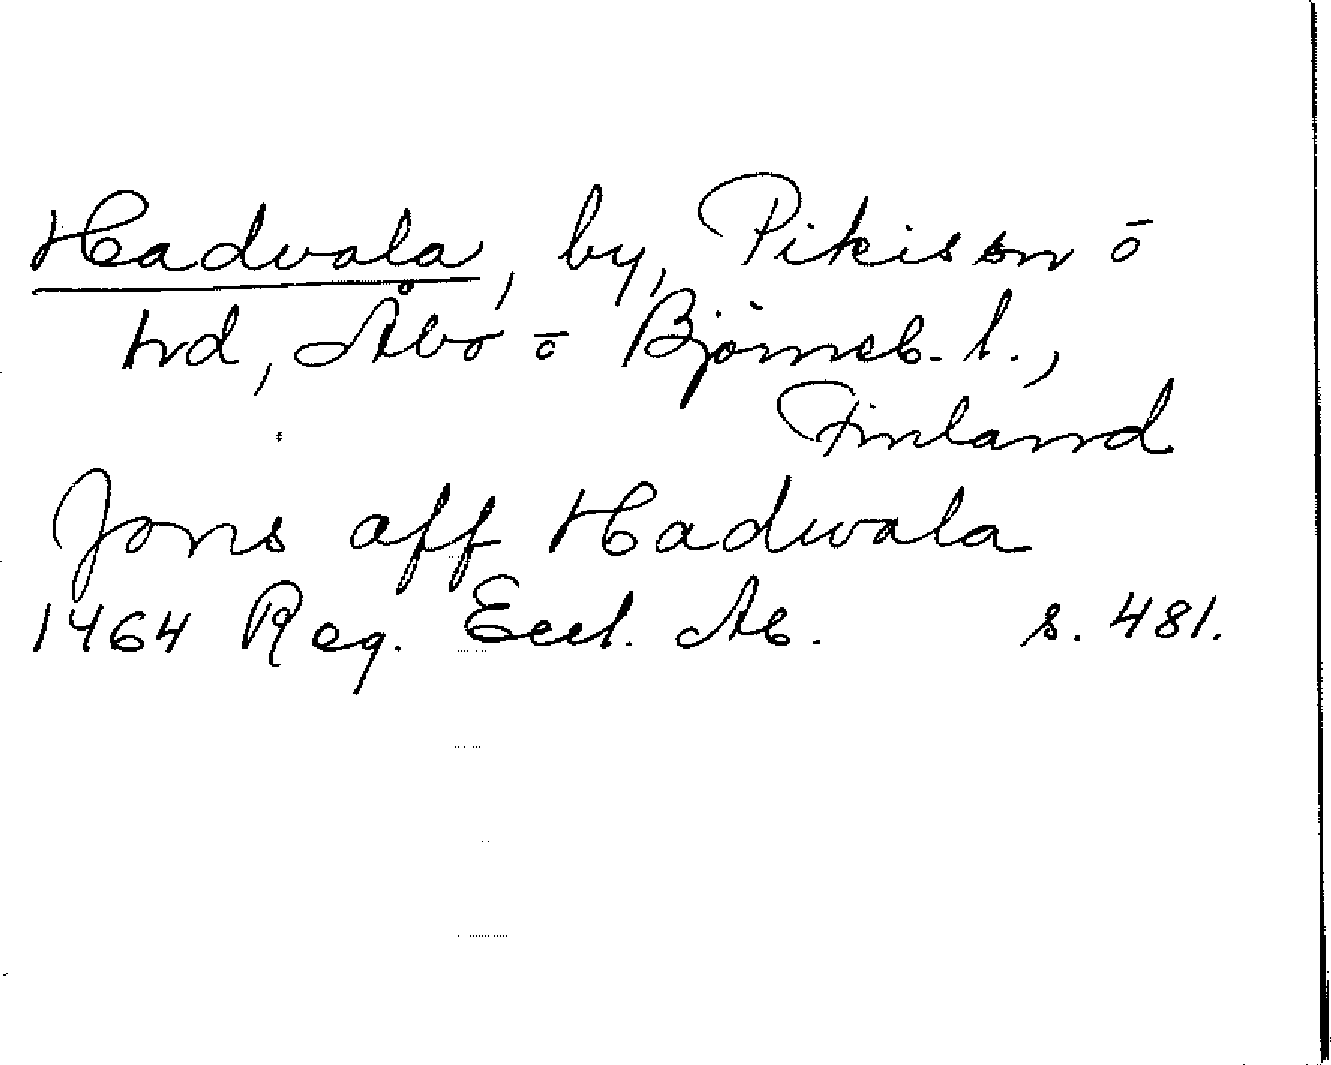 Hadvala, by, Pikis sn ō
hd, Åbo ō Björneb. l.,
Finland
Jons aff Hadwala
1464 Reg. Eccl. Ab. s. 481.